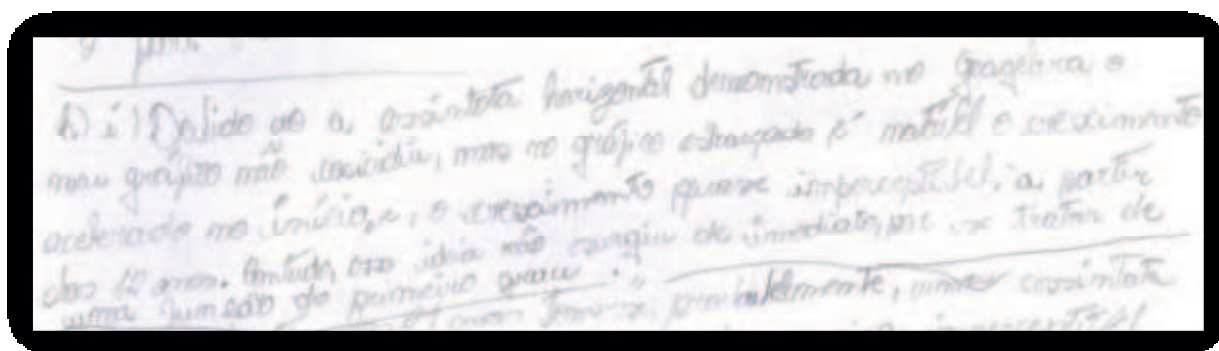 b) i) Devido ao a assíntota horizontal demonstrada no Geogebra o
meu gráfico não coincidiu, mas no gráfico esboçado é notável o crescimento
acelerado no início, e, o crescimento quase imperceptível, a partir
dos 12 anos. Contudo, essa ideia não surgiu de imediato, por se tratar de
uma função do primeiro grau."
anos provavelmente, uma assíntota
imperceptível